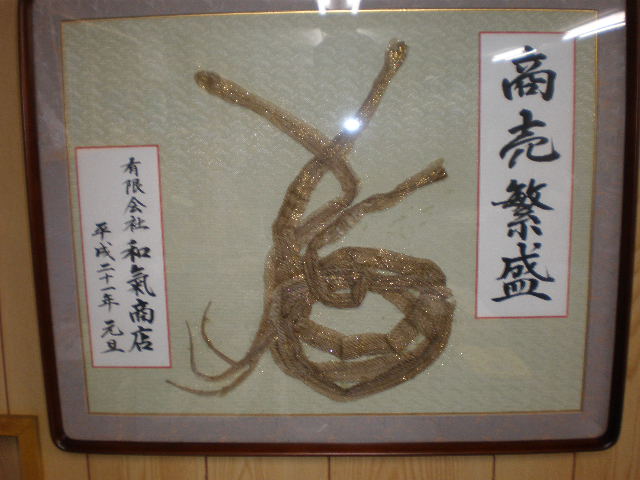 商売繁盛
有限会社 和氣商店
平成二十一年 元旦